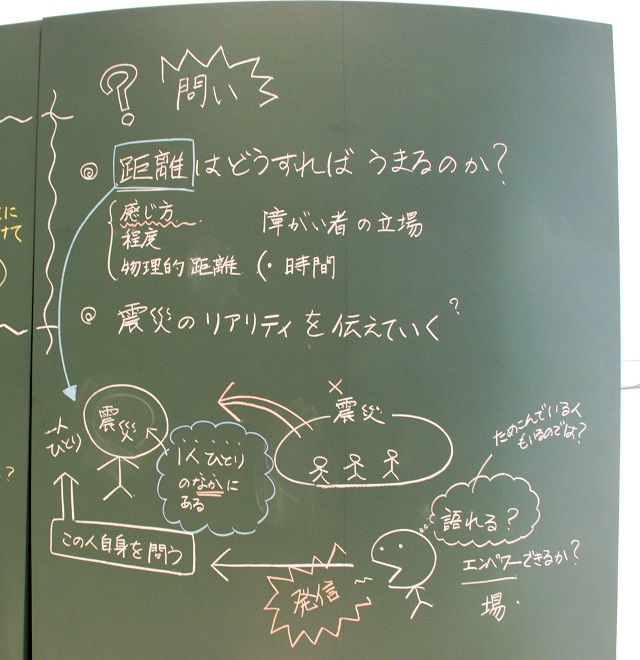 ? 問い
◎ 距離はどうすればうまるのか?
感じ方
障がい者の立場
程度
物理的距離 (・時間
◎ 震災のリアリティを伝えていく?
に
けて
?
一人ひとり
震災
1人ひとり
のなかに
ある
×
震災
ためこんでいる人
もいるのでは?
語れる?
エンパワーできるか?
場・
この人自身を問う
発信